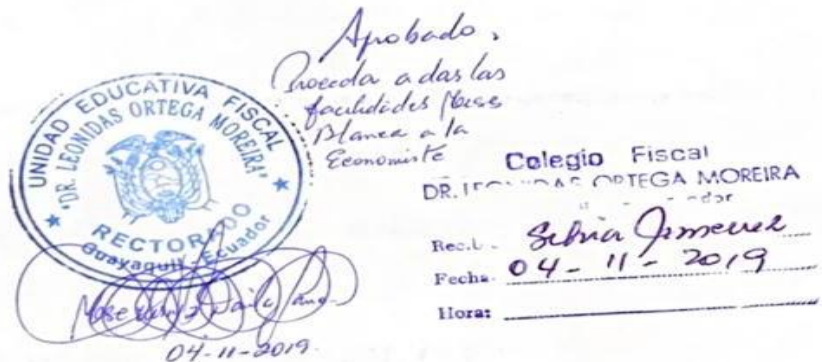 Aprobado.
Proceda a dar las
facilidades
Blanca a la
Economista
UNIDAD EDUCATIVA FISCAL
"DR. LEONIDAS ORTEGA MOREIRA"
RECTORADO
Guayaquil - Ecuador
04-11-2019.
Colegio Fiscal
DR. LEONIDAS ORTEGA MOREIRA
Silvia Jimenez
Fecha 04-11-2019
Hora: